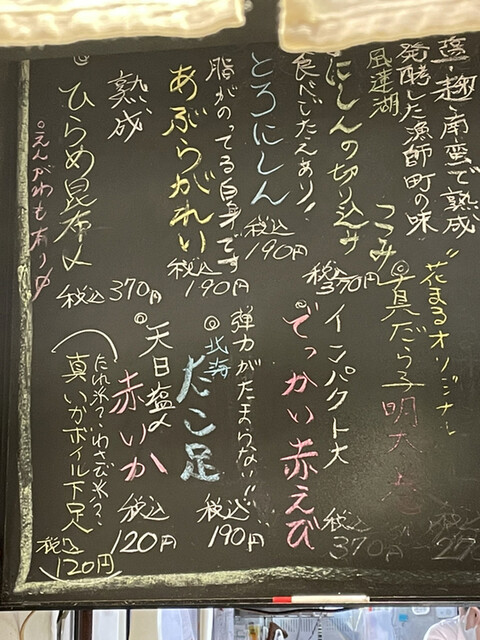 塩・麹・南蛮で熟成
発酵した漁師町の味
風蓮湖
にしんの切り込み つつみ
税込
370円
食べごたえあり!
とろにしん
税込
190円
脂がのってる白身です
あぶらがれい
税込
190円
熟成
ひらめ昆布〆
税込 370円
えんがわも有り
"花まるオリジナル"
真だら子明太巻
税込
27
インパクト大
でっかい赤えび
税込
370円
弾力がたまらない!!
北海
たこ足
税込
190円
天日塩〆
赤いか
税込
120円
たれ派?わさび派?
真いかボイル下足
税込
120円